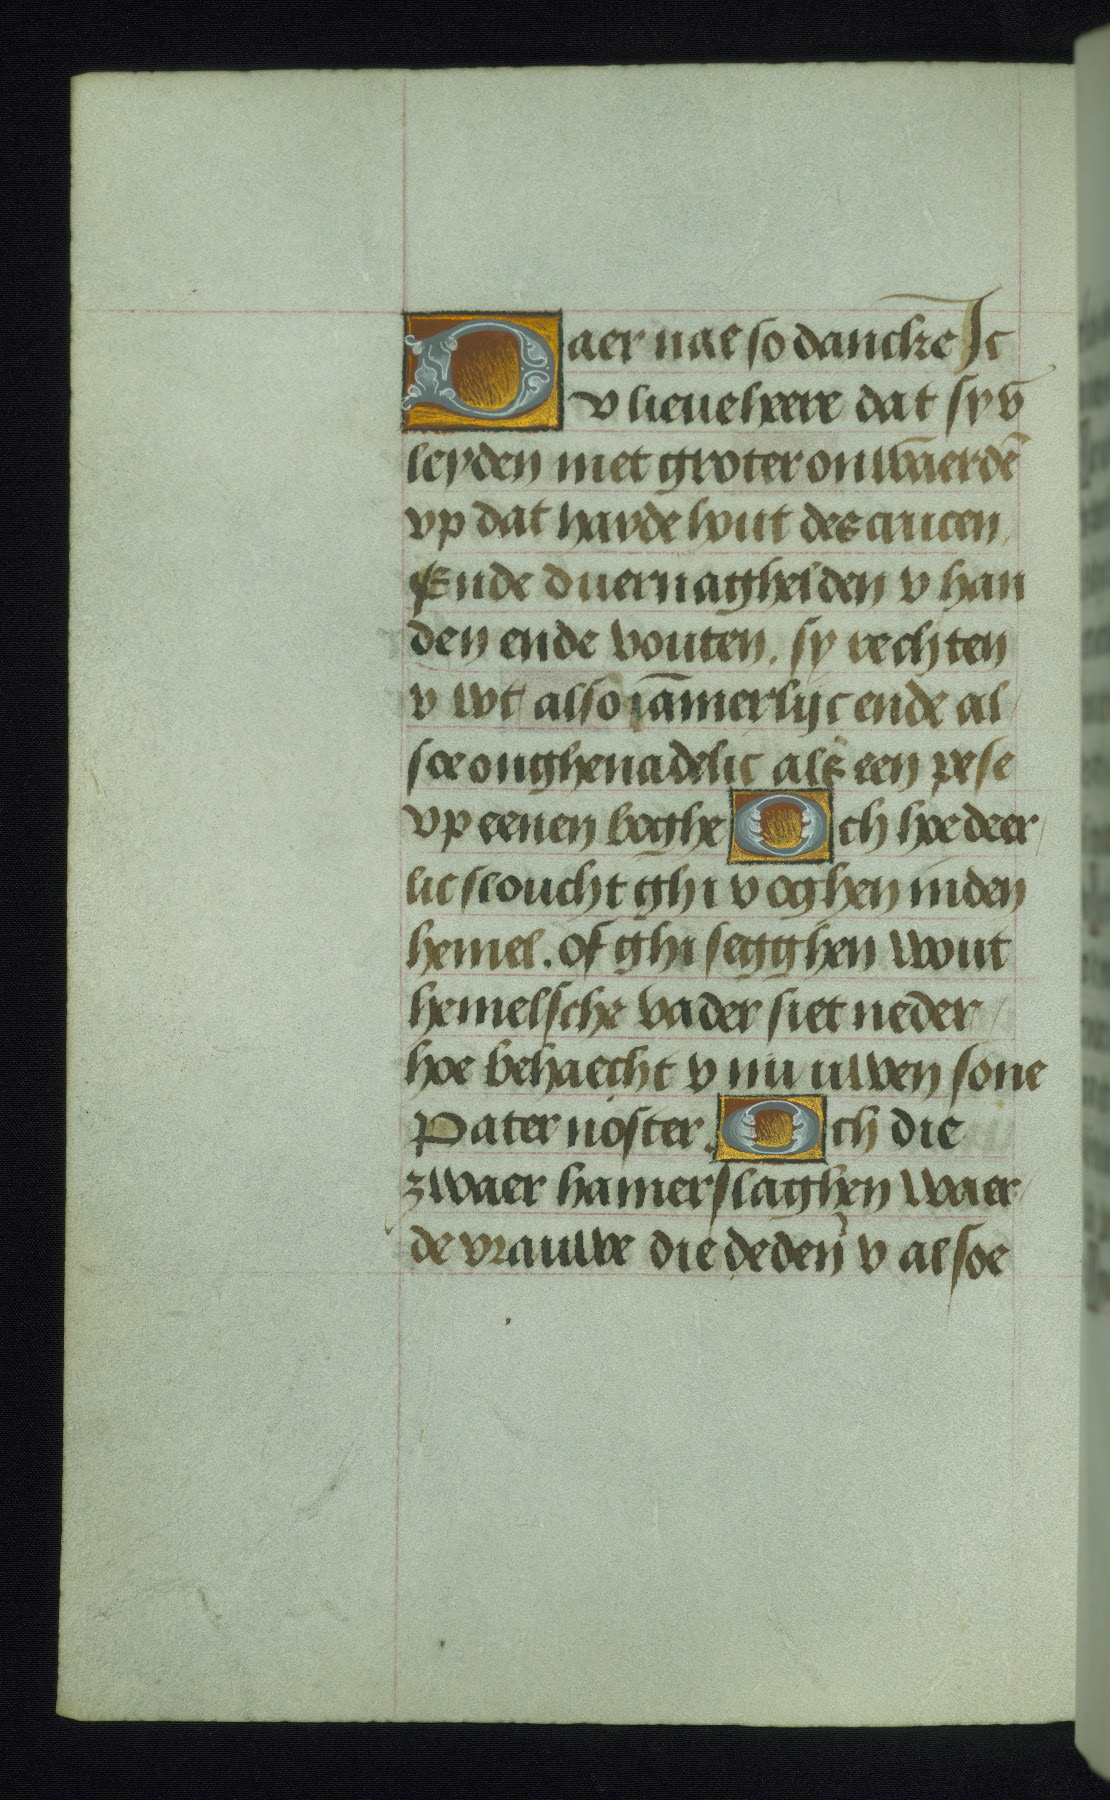 Daer nae so dancke Ic
v lieue heere dat sy v̄
leyden met groter onwaerdē
vp dat harde hout des crucen
Ende duernaghelden v han
den ende vouten. sy rechten
v wt also iāmerlijc ende al
soe onghenadelic als een pese
vp eenen boghe Och hoe deer
lic sloucht ghi v oghen inden
hemel. Of ghi segghen wout
hemelsche vader siet neder
hoe behaecht v nu uwen sone
Pater noster. Och die
zwaer hamerslaghen waer
de vrauwe die deden v al soe